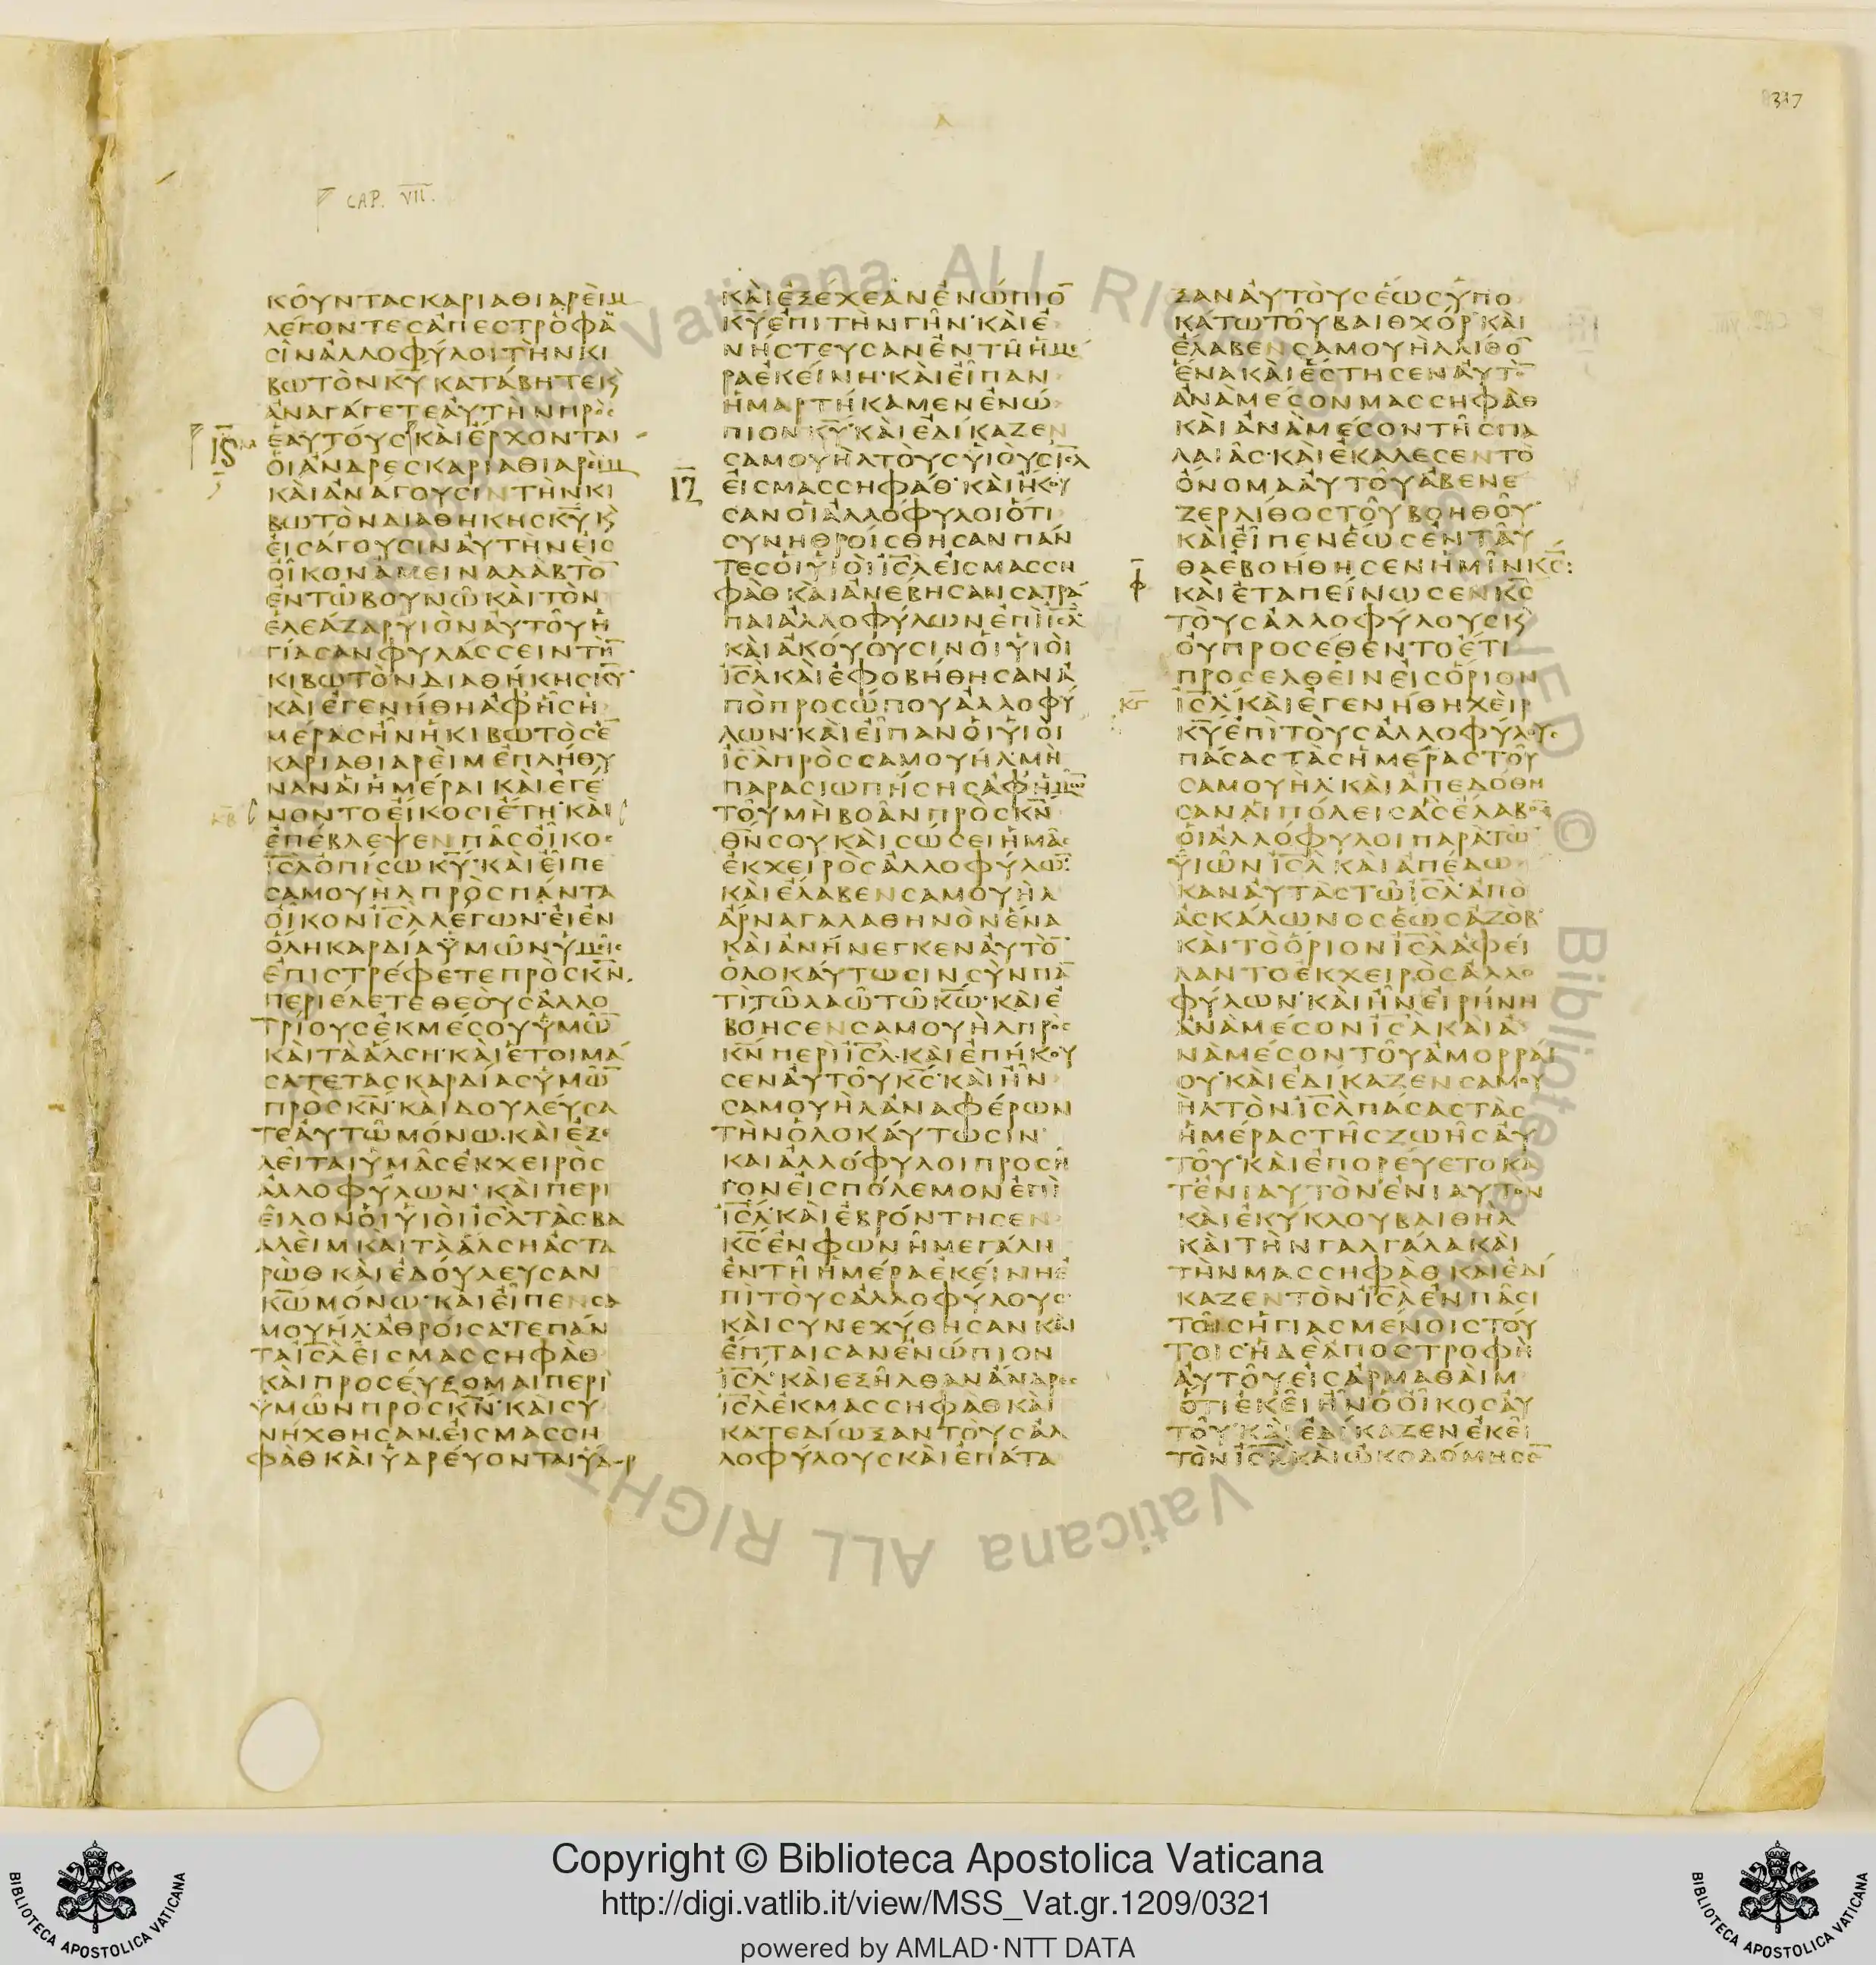 317
CAP. VII.
ΚΟΥΝΤΑΣΚΑΡΙΑΘΙΑΡΕΙΜ
ΛΕΓΟΝΤΕΣΑΠΕΣΤΡΟΦΑ
ΣΙΝΑΛΛΟΦΥΛΟΙΤΗΝΚΙ
ΒΩΤΟΝΚΥΚΑΤΑΒΗΤΕΚ
ΑΝΑΓΑΓΕΤΕΑΥΤΗΝΠΡΟΣ
ΕΑΥΤΟΥΣΚΑΙΕΡΧΟΝΤΑΙ
ΟΙΑΝΔΡΕΣΚΑΡΙΑΘΙΑΡΕΙΜ
ΚΑΙΑΝΑΓΟΥΣΙΝΤΗΝΚΙ
ΒΩΤΟΝΔΙΑΘΗΚΗΣΚΥΚ
ΕΙΣΑΓΟΥΣΙΝΑΥΤΗΝΕΙΣ
ΟΙΚΟΝΑΜΕΙΝΑΔΑΒΤΟ
ΕΝΤΩΒΟΥΝΩΚΑΙΤΟΝ
ΕΛΕΑΖΑΡΥΙΟΝΑΥΤΟΥΗ
ΓΙΑΣΑΝΦΥΛΑΣΣΕΙΝΤΗ
ΚΙΒΩΤΟΝΔΙΑΘΗΚΗΣΚΥ
ΚΑΙΕΓΕΝΗΘΗΑΦΗΣΗ
ΜΕΡΑΣΗΝΗΚΙΒΩΤΟΣΕ
ΚΑΡΙΑΘΙΑΡΕΙΜΕΠΛΗΘΥ
ΝΑΝΑΙΗΜΕΡΑΙΚΑΙΕΓΕ
ΝΟΝΤΟΕΙΚΟΣΙΕΤΗΚΑΙ
ΕΠΕΒΛΕΨΕΝΠΑΣΟΙΚΟΣ
ΙΣΛΟΠΙΣΩΚΥΚΑΙΕΙΠΕ
ΣΑΜΟΥΗΛΠΡΟΣΠΑΝΤΑ
ΟΙΚΟΝΙΣΛΛΕΓΩΝΕΙΕΝ
ΟΛΗΚΑΡΔΙΑΥΜΩΝΥΜΕΙΣ
ΕΠΙΣΤΡΕΦΕΤΕΠΡΟΣΚΝ
ΠΕΡΙΕΛΕΤΕΘΕΟΥΣΑΛΛΟ
ΤΡΙΟΥΣΕΚΜΕΣΟΥΥΜΩ
ΚΑΙΤΑΑΛΣΗΚΑΙΕΤΟΙΜΑ
ΣΑΤΕΤΑΣΚΑΡΔΙΑΣΥΜΩ
ΠΡΟΣΚΝΚΑΙΔΟΥΛΕΥΣΑ
ΤΕΑΥΤΩΜΟΝΩΚΑΙΕΞΕ
ΛΕΙΤΑΙΥΜΑΣΕΚΧΕΙΡΟΣ
ΑΛΛΟΦΥΛΩΝΚΑΙΠΕΡΙ
ΕΙΛΟΝΟΙΥΙΟΙΙΣΛΤΑΣΒΑ
ΑΛΕΙΜΚΑΙΤΑΑΛΣΗΑΣΤΑ
ΡΩΘΚΑΙΕΔΟΥΛΕΥΣΑΝ
ΚΩΜΟΝΩΚΑΙΕΙΠΕΝΣΑ
ΜΟΥΗΛΑΘΡΟΙΣΑΤΕΠΑΝ
ΤΑΙΣΛΕΙΣΜΑΣΣΗΦΑΘ
ΚΑΙΠΡΟΣΕΥΞΟΜΑΙΠΕΡΙ
ΥΜΩΝΠΡΟΣΚΝΚΑΙΣΥ
ΝΗΧΘΗΣΑΝΕΙΣΜΑΣΣΗ
ΦΑΘΚΑΙΥΔΡΕΥΟΝΤΑΙΥΔΩΡ
ΚΑΙΕΞΕΧΕΑΝΕΝΩΠΙΟ
ΚΥΕΠΙΤΗΝΓΗΝΚΑΙΕ
ΝΗΣΤΕΥΣΑΝΕΝΤΗΗΜΕ
ΡΑΕΚΕΙΝΗΚΑΙΕΙΠΑΝ
ΗΜΑΡΤΗΚΑΜΕΝΕΝΩ
ΠΙΟΝΚΥΚΑΙΕΔΙΚΑΖΕΝ
ΣΑΜΟΥΗΛΤΟΥΣΥΙΟΥΣΙΣΛ
ΕΙΣΜΑΣΣΗΦΑΘΚΑΙΗΚΟΥ
ΣΑΝΟΙΑΛΛΟΦΥΛΟΙΟΤΙ
ΣΥΝΗΘΡΟΙΣΘΗΣΑΝΠΑΝ
ΤΕΣΟΙΥΙΟΙΙΣΛΕΙΣΜΑΣΣΗ
ΦΑΘΚΑΙΑΝΕΒΗΣΑΝΣΑΤΡΑ
ΠΑΙΑΛΛΟΦΥΛΩΝΕΠΙΙΣΛ
ΚΑΙΑΚΟΥΟΥΣΙΝΟΙΥΙΟΙ
ΙΣΛΚΑΙΕΦΟΒΗΘΗΣΑΝΑ
ΠΟΠΡΟΣΩΠΟΥΑΛΛΟΦΥ
ΛΩΝΚΑΙΕΙΠΑΝΟΙΥΙΟΙ
ΙΣΛΠΡΟΣΣΑΜΟΥΗΛΜΗ
ΠΑΡΑΣΙΩΠΗΣΗΣΑΦΗΜΩ
ΤΟΥΜΗΒΟΑΝΠΡΟΣΚΝ
ΘΝΣΟΥΚΑΙΣΩΣΕΙΗΜΑΣ
ΕΚΧΕΙΡΟΣΑΛΛΟΦΥΛΩ
ΚΑΙΕΛΑΒΕΝΣΑΜΟΥΗΛ
ΑΡΝΑΓΑΛΑΘΗΝΟΝΕΝΑ
ΚΑΙΑΝΗΝΕΓΚΕΝΑΥΤΟ
ΟΛΟΚΑΥΤΩΣΙΝΣΥΝΠΑ
ΤΙΤΩΛΑΩΤΩΚΩΚΑΙΕ
ΒΟΗΣΕΝΣΑΜΟΥΗΛΠΡΟΣ
ΚΝΠΕΡΙΙΣΛΚΑΙΕΠΗΚΟΥ
ΣΕΝΑΥΤΟΥΚΣΚΑΙΗΝ
ΣΑΜΟΥΗΛΑΝΑΦΕΡΩΝ
ΤΗΝΟΛΟΚΑΥΤΩΣΙΝ
ΚΑΙΑΛΛΟΦΥΛΟΙΠΡΟΣΗ
ΓΟΝΕΙΣΠΟΛΕΜΟΝΕΠΙ
ΙΣΛΚΑΙΕΒΡΟΝΤΗΣΕΝ
ΚΣΕΝΦΩΝΗΜΕΓΑΛΗ
ΕΝΤΗΗΜΕΡΑΕΚΕΙΝΗΕ
ΠΙΤΟΥΣΑΛΛΟΦΥΛΟΥΣ
ΚΑΙΣΥΝΕΧΥΘΗΣΑΝΚΑΙ
ΕΠΤΑΙΣΑΝΕΝΩΠΙΟΝ
ΙΣΛΚΑΙΕΞΗΛΘΑΝΑΝΔΡΕΣ
ΙΣΛΕΚΜΑΣΣΗΦΑΘΚΑΙ
ΚΑΤΕΔΙΩΞΑΝΤΟΥΣΑΛ
ΛΟΦΥΛΟΥΣΚΑΙΕΠΑΤΑ
ΞΑΝΑΥΤΟΥΣΕΩΣΥΠΟ
ΚΑΤΩΤΟΥΒΑΙΘΧΟΡΚΑΙ
ΕΛΑΒΕΝΣΑΜΟΥΗΛΛΙΘΟ
ΕΝΑΚΑΙΕΣΤΗΣΕΝΑΥΤΟ
ΑΝΑΜΕΣΟΝΜΑΣΣΗΦΑΘ
ΚΑΙΑΝΑΜΕΣΟΝΤΗΣΠΑ
ΛΑΙΑΣΚΑΙΕΚΑΛΕΣΕΝΤΟ
ΟΝΟΜΑΑΥΤΟΥΑΒΕΝΕ
ΖΕΡΛΙΘΟΣΤΟΥΒΟΗΘΟΥ
ΚΑΙΕΙΠΕΝΕΩΣΕΝΤΑΥ
ΘΑΕΒΟΗΘΗΣΕΝΗΜΙΝΚΣ:
ΚΑΙΕΤΑΠΕΙΝΩΣΕΝΚΣ
ΤΟΥΣΑΛΛΟΦΥΛΟΥΣΚ
ΟΥΠΡΟΣΕΘΕΝΤΟΕΤΙ
ΠΡΟΣΕΛΘΕΙΝΕΙΣΟΡΙΟΝ
ΙΣΛΚΑΙΕΓΕΝΗΘΗΧΕΙΡ
ΚΥΕΠΙΤΟΥΣΑΛΛΟΦΥΛΟΥΣ
ΠΑΣΑΣΤΑΣΗΜΕΡΑΣΤΟΥ
ΣΑΜΟΥΗΛΚΑΙΑΠΕΔΟΘΗ
ΣΑΝΑΙΠΟΛΕΙΣΑΣΕΛΑΒΟ
ΟΙΑΛΛΟΦΥΛΟΙΠΑΡΑΤΩ
ΥΙΩΝΙΣΛΚΑΙΑΠΕΔΩ
ΚΑΝΑΥΤΑΣΤΩΙΣΛΑΠΟ
ΑΣΚΑΛΩΝΟΣΕΩΣΑΖΟΒ
ΚΑΙΤΟΟΡΙΟΝΙΣΛΑΦΕΙ
ΛΑΝΤΟΕΚΧΕΙΡΟΣΑΛΛΟ
ΦΥΛΩΝΚΑΙΗΝΕΙΡΗΝΗ
ΑΝΑΜΕΣΟΝΙΣΛΚΑΙΑ
ΝΑΜΕΣΟΝΤΟΥΑΜΟΡΡΑΙ
ΟΥΚΑΙΕΔΙΚΑΖΕΝΣΑΜΟΥ
ΗΛΤΟΝΙΣΛΠΑΣΑΣΤΑΣ
ΗΜΕΡΑΣΤΗΣΖΩΗΣΑΥ
ΤΟΥΚΑΙΕΠΟΡΕΥΕΤΟΚΑ
ΤΕΝΙΑΥΤΟΝΕΝΙΑΥΤΟΝ
ΚΑΙΕΚΥΚΛΟΥΒΑΙΘΗΛ
ΚΑΙΤΗΝΓΑΛΓΑΛΑΚΑΙ
ΤΗΝΜΑΣΣΗΦΑΘΚΑΙΕΔΙ
ΚΑΖΕΝΤΟΝΙΣΛΕΝΠΑΣΙ
ΤΟΙΣΗΓΙΑΣΜΕΝΟΙΣΤΟΥ
ΤΟΙΣΗΔΕΑΠΟΣΤΡΟΦΗ
ΑΥΤΟΥΕΙΣΑΡΜΑΘΑΙΜ
ΟΤΙΕΚΕΙΗΝΟΟΙΚΟΣΑΥ
ΤΟΥΚΑΙΕΔΙΚΑΖΕΝΕΚΕΙ
ΤΟΝΙΣΛΚΑΙΩΚΟΔΟΜΗΣΕ
Copyright © Biblioteca Apostolica Vaticana
http://digi.vatlib.it/view/MSS_Vat.gr.1209/0321
powered by AMLAD·NTT DATA
BIBLIOTECA APOSTOLICA VATICANA
BIBLIOTECA APOSTOLICA VATICANA